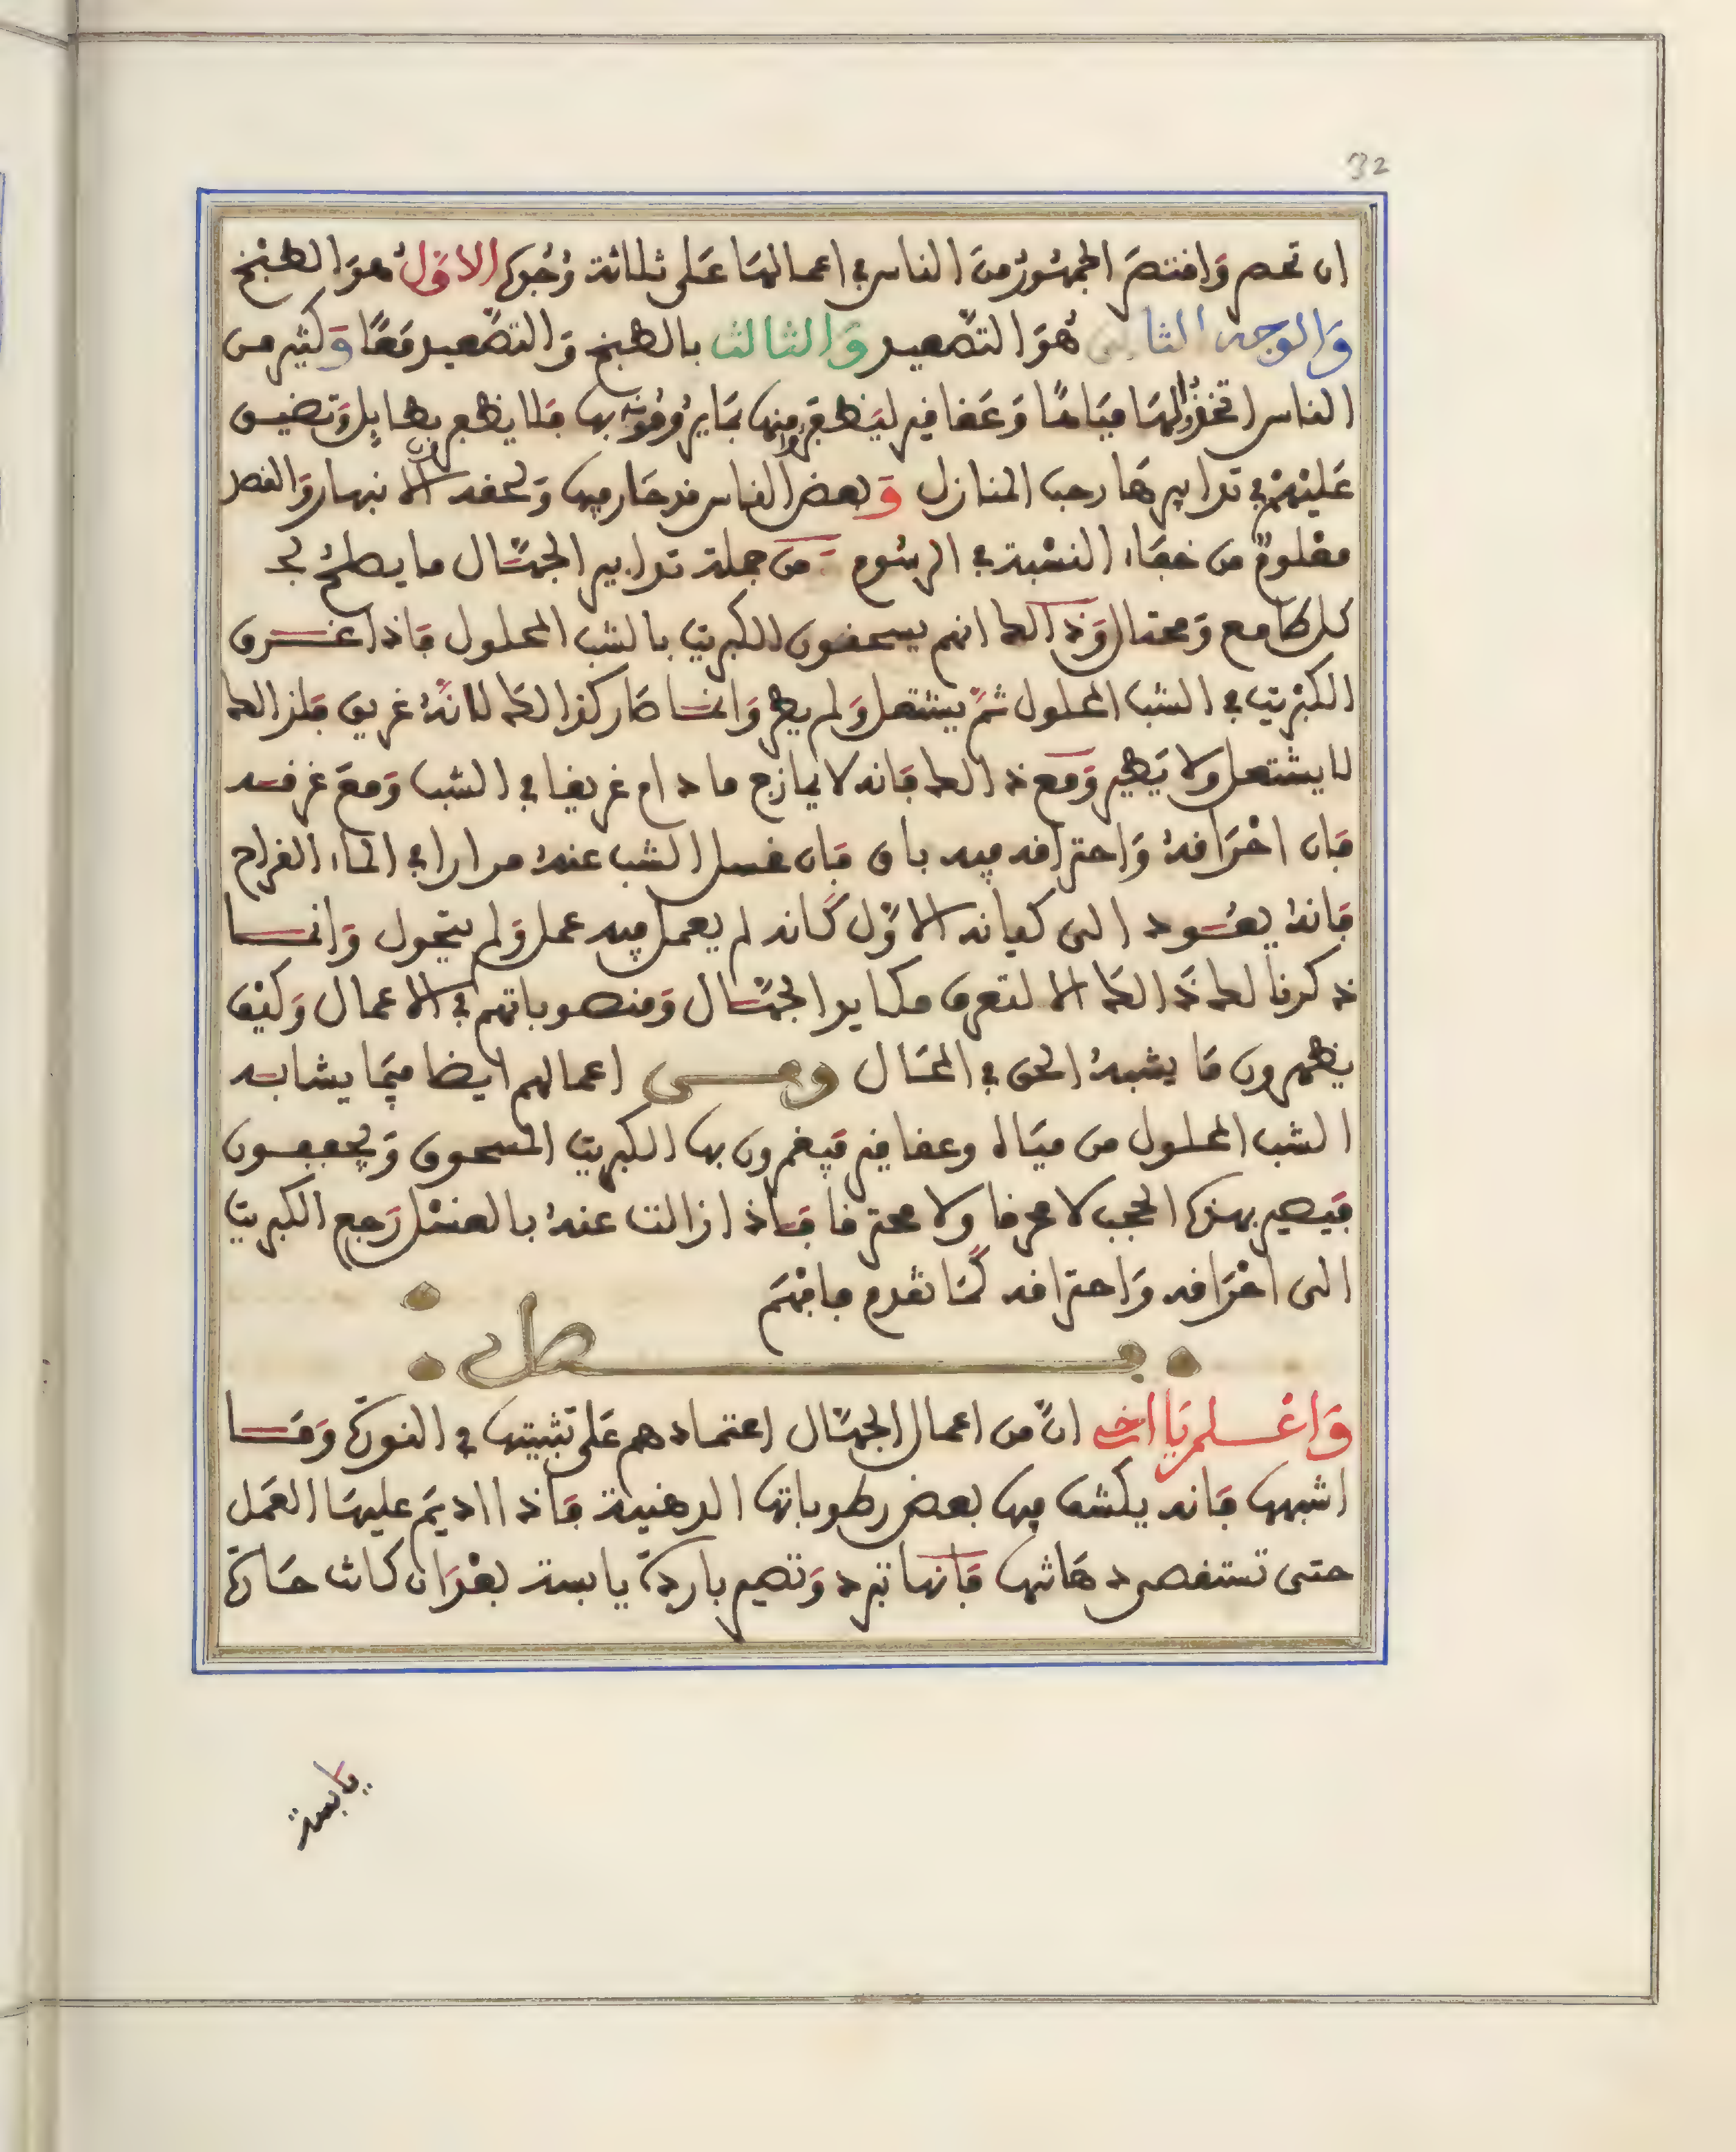 32
ان تحصر وَاقتصَر الجمهُورُ مِنَ الناس في اعمالهَا عَلى ثلاثة وُجُوه الاوّلُ هوَ الطبخ
وَالوجه الثاني هُوَ التصّعيد وَالثالث بالطبخ وَالتصّعيد مَعًا وَكثير من
الناس اتخذُوا لهَا مياهًا وَعَقاقير ليَظفرُوا منها بمَا يرُومُونه بها فلا يظفرون بطايل وَتضيق
عَليْهمْ في تدابيرهَا رحب المنازل وَبعض الناس قد حَار فيها وَلحقه الانبهار وَالقصر
معْلومٌ من خفاء النسْبة في الرسُوم وَمن جملة تدابير الجهّال ما يطلعُ لهُ
كل طامع وَمحتال وَذَالك انهم يسحقون الكبريت بالشب المحلول فاذا غرق
الكبْريت في الشب المحلول ثمّ يشتعل وَلم يطر وَانما صَار كذالك لانّهُ غريق فلذالك
لا يشتعل ولا يَطير وَمَع ذالك فانه لا يمازج ما دام غريقا في الشب وَمعَ غرقه
فان احْرَاقهُ وَاحتراقه فيه باق فان غسل الشب عنهُ مرارا في الماء القراح
فانهُ يعُود الى كيانه الاوّل كانه لم يعمل فيه عمل وَلم يتحول وَانما
ذكرنا لك ذَالك الا لتعرف مكايد الجهّال وَمنصوباتهم في الاعمال وَكيْف
يظهرون مَا يشبهُ الحق في المحَال ومن اعمالهم ايضا فيمَا يشابه
الشب المحلول من ميَاه وعقاقير فيغمرون بها الكبريت المسحوق وَيجففون
فيَصير بهذه الحجب لا محرقا ولا محترقا فاذا زالت عنهُ بالغسْل رَجع الكبريت
الى احْرَاقه وَاحتراقه كمَا تقدم فافهَم
فصل
وَاعْلم يَا اخي انّ من اعمال الجهّال اعتماد هم عَلى تثبيتها في النورَة وَمَا
اشبهها فانه يكشف فيها بعض رطوباتها الدهنية فاذا اديم عليهَا العَمَل
حتى تستقصى دهَانتها فانها تبرد وَتصير باردة يابسة بعْدَ ان كانت حَارة
يَابسة